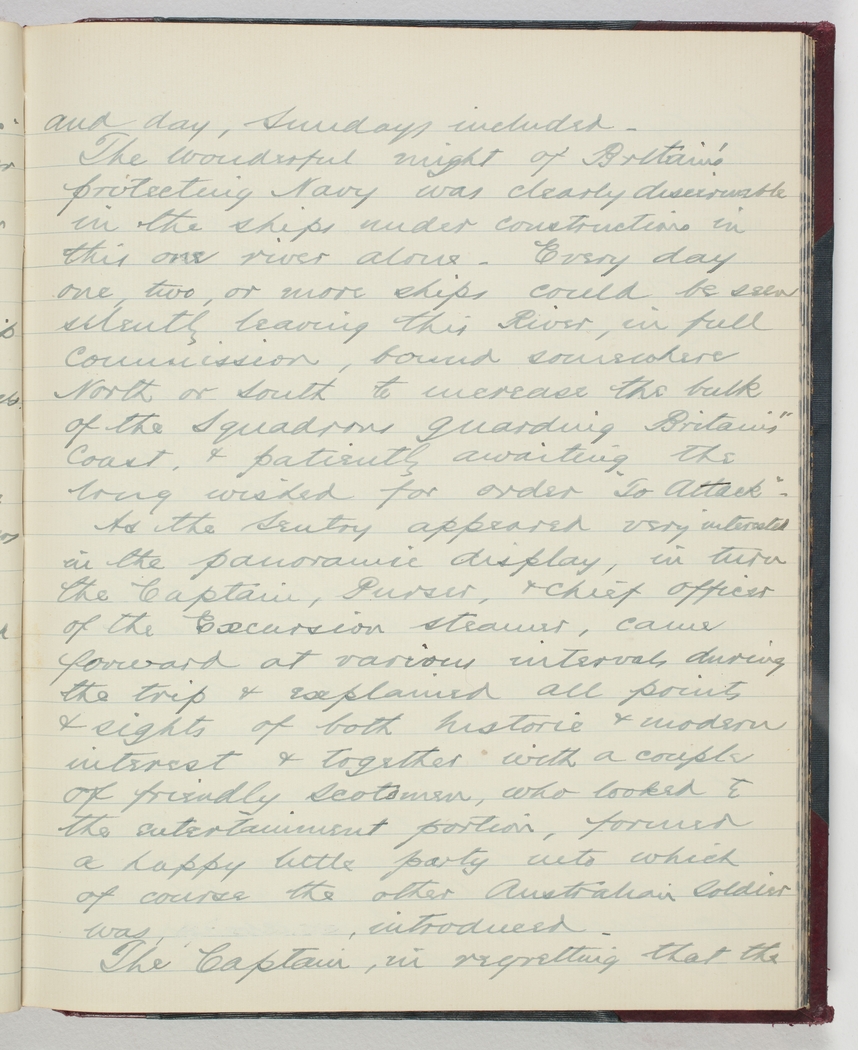 and day, Sundays included -
The wonderful might of Britain's
protecting Navy was clearly discernable
in the ships under construction in
this one river alone - Every day
one, two, or more ships could be seen
silently leaving this River, in full
Commission, bound somewhere
North or South to increase the bulk
of the Squadrons guarding Britains"
Coast, & patiently awaiting the
long wished for order "To Attack"-
As the Sentry appeared very interested
in the panoramic display, in turn
the Captain, Purser, & Chief Officer
of the Excursion steamer, came
forward at various intervals during
the trip & explained all points
& sights of both historic & modern
interest & together with a couple
of friendly Scotsmen, who looked to
the entertainment portion, formed
a happy little party into which
of course the other Australian Soldier
was, , introduced -
The Captain, in regretting that the